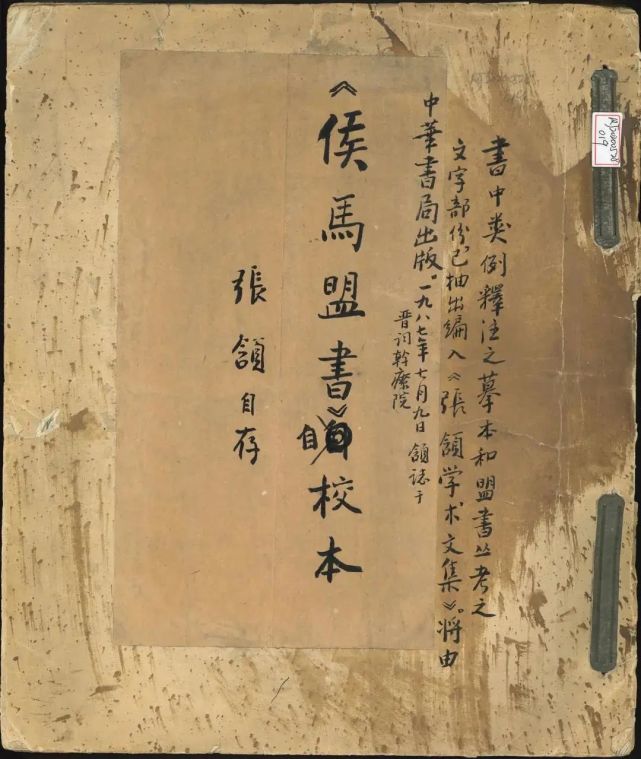 书中类例釋注之摹本和盟書丛考之
文字部份已抽出编入《張頷学术文集》。將由
中華書局出版。一九八七年七月九日 頷誌于
晋祠幹療院
《侯馬盟書》自校本
張頷自存